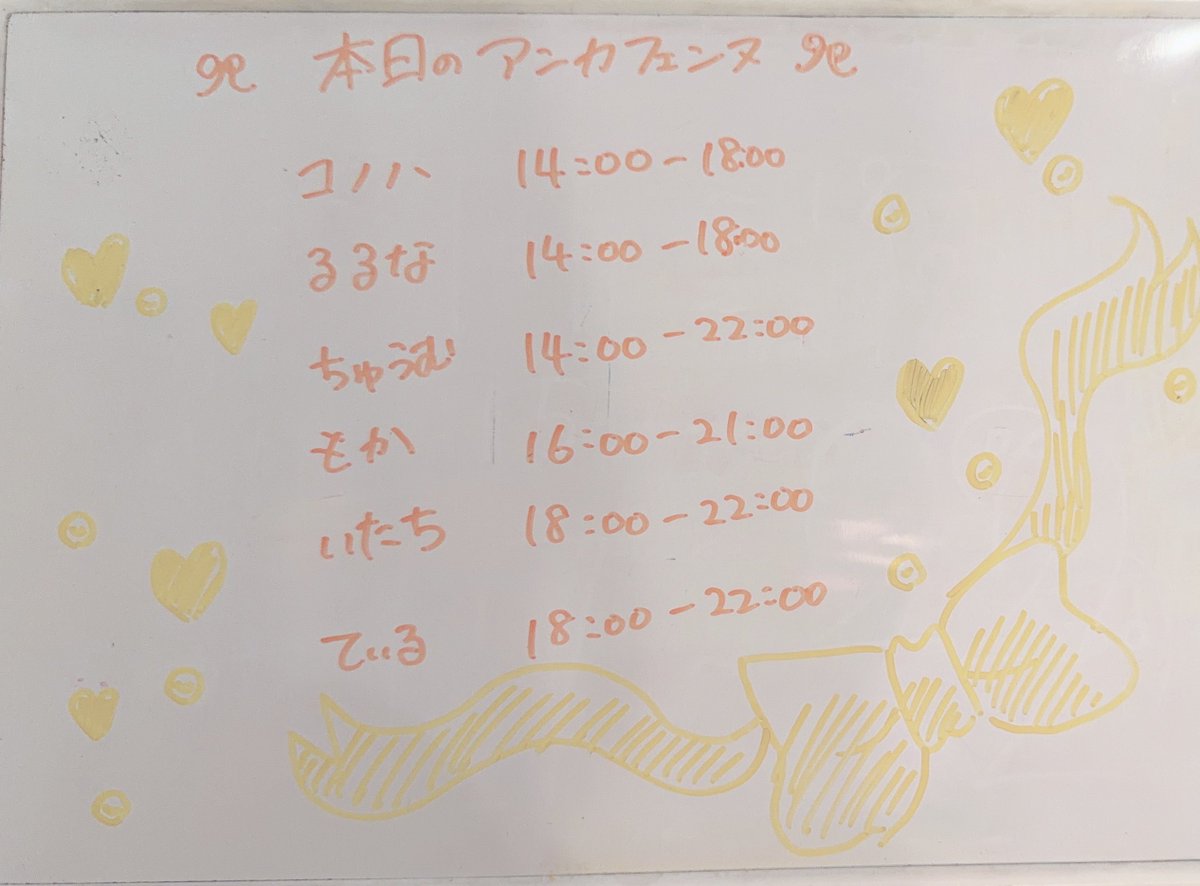 ୨୧ 本日のアンカフェンヌ ୨୧
コノハ 14:00-18:00
るるな 14:00-18:00
ちゅうむ 14:00-22:00
そか 16:00-21:00
いたち 18:00-22:00
てぃる 18:00-22:00